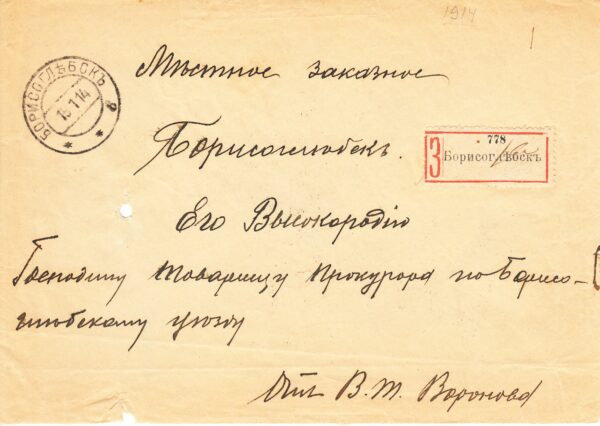 1914
Мѣстное заказное
БОРИСОГЛѢБСКЪ
15.1.14
Борисоглѣбскъ.
З
778
Борисоглѣбскъ
Его Высокородію
Господину Товарищу Прокурора по Борисо-
глѣбскому уѣзду
Отъ В. М. Воронова